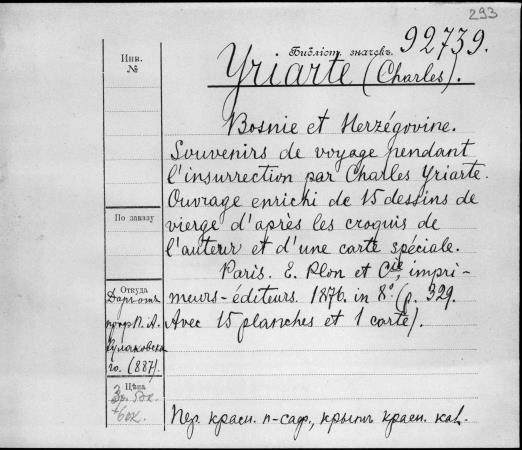 293
Библіот. значекъ. 92739.
Инв.
№
Yriarte (Charles).
Bosnie et Herzégovine.
Souvenirs de voyage pendant
l'insurrection par Charles Yriarte.
Ouvrage enrichi de 15 dessins de
vierge d'après les croquis de
l'auteur et d'une carte spéciale.
Paris. E. Plon et Cie, impri-
meurs-éditeurs. 1876. in 8° (p. 329.
Avec 15 planches et 1 carte).
По заказу
Откуда
Даръ отъ
проф. П. А.
Кулаковска
го. (887).
Цѣна
3р. 50к.
+60к.
Пер. красн. п-саф., крытъ красн. кал.